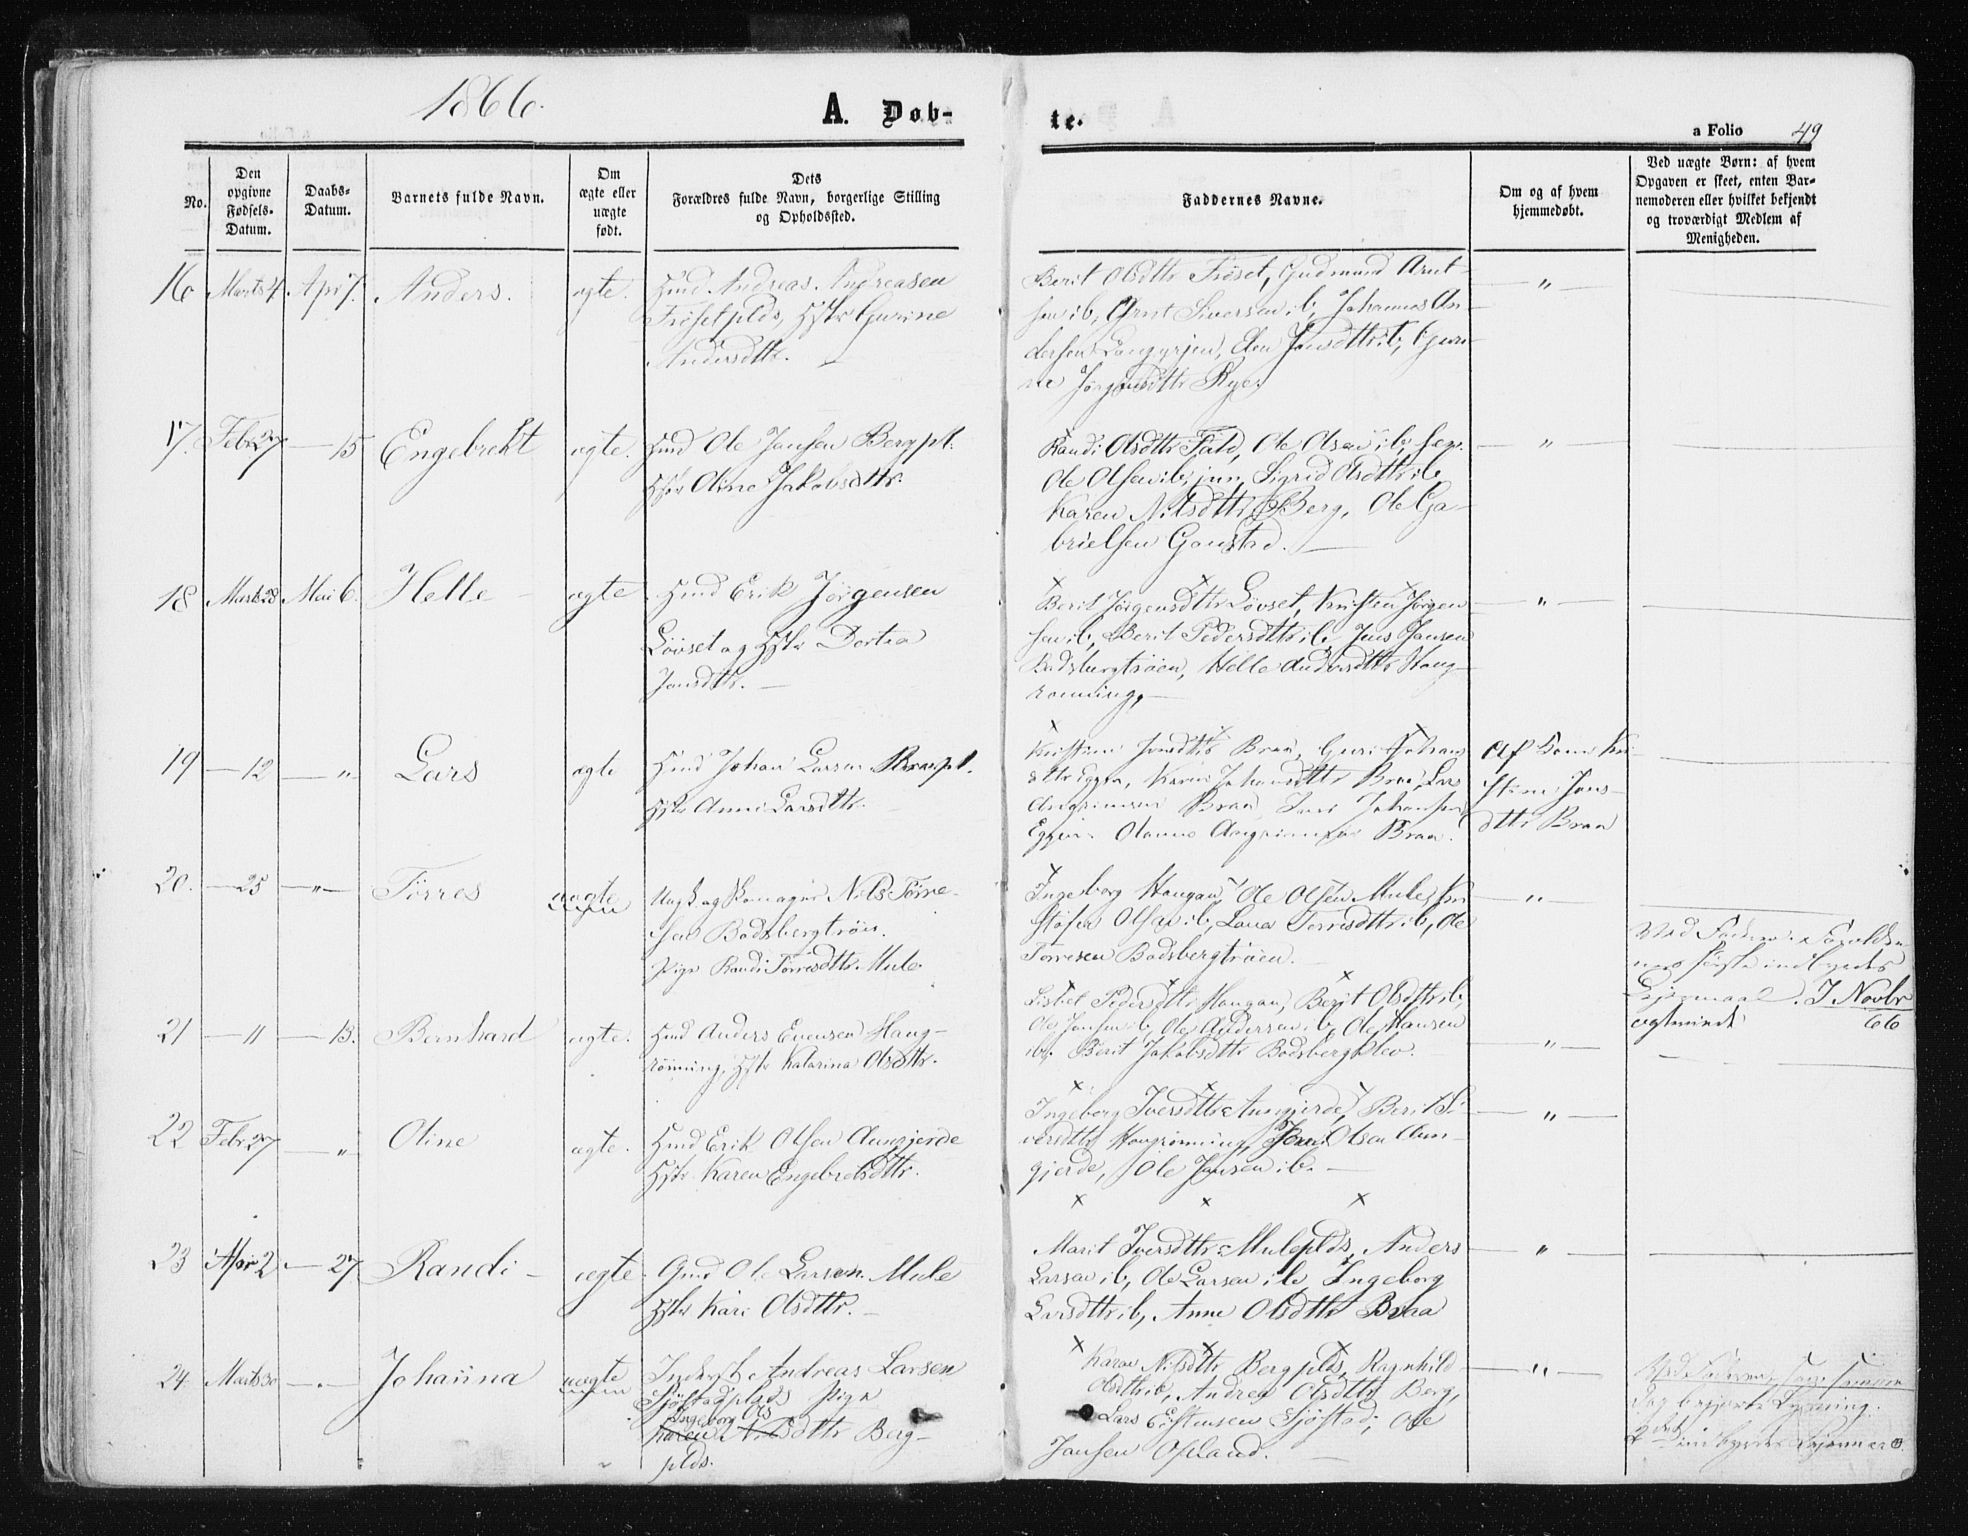 1866.
A. Døb-
te.
a Folio 49
No.
Den opgivne Fødsels-Datum.
Daabs-Datum.
Barnets fulde Navn.
Om ægte eller uægte født.
Dets Forældres fulde Navn, borgerlige Stilling og Opholdssted.
Faddernes Navne.
Om og af hvem hjemmedøbt.
Ved uægte Børn: af hvem Opgaven er skeet, enten Barnemoderen eller hvilket bekjendt og troværdigt Medlem af Menigheden.
16 Marts 4 Apr 7. Anders. ægte. Hmd Andreas Andreasen
Frøsetplds, Hstr Gurine
Andersdttr.
Berit Olsdttr Frøset, Gudmund Arnt-
sen ib, Arnt Siversen ib, Johannes An-
dersen Langørjen, Elen Jonsdttr ib, Guri-
ne Jørgensdttr Rye.
17. Febr 27 — 15 Engebrekt ægte. Hmd Ole Jonsen Bergpl.
Hstr Oline Jakobsdttr.
Randi Olsdttr Fald, Ole Olsen ib, sen.
Ole Olsen ib, jun, Sigrid Olsdttr ib
Karen Nilsdttr Berg, Ole Ga-
brielsen Gaustad.
18 Marts 28 Mai 6. Helle ægte Hmd Erik Jørgensen
Løvset og Hstr Dortea
Jonsdttr.
Berit Jørgensdttr Løvset, Kristen Jørgen
sen ib, Berit Pedersdttr ib, Jens Jansen
Bodsbergtrøen, Helle Andersdttr Haug-
rønning.
19 — 12 — " Lars ægte Hmd Johan Larsen Braapl.
Hstr Anne Larsdttr.
Kristine Jonsdttr Braa, Guri Johans
dttr Eggen, Karen Johansdttr Braa, Lars
Angrimsen Braa, Lars Johansen
Eggen. Olaus Angrimsen Braa.
Af
Kri-
stine Jons-
dttr Braa
20. — 25 — " — Tørres uægte Ungk og Skomager Nils Tørre-
sen Bodsbergtrøen.
Pige Randi Tørresdttr Mule
Ingeborg Haugan, Ole Olsen Mule, Kri
stofer Olsen ib, Lava Torresdttr ib, Ole
Torresen Bodsbergtrøen.
Ved Faderen. Forældre-
nes første indbyrdes
Leiermaal. I Novbr 66
ægteviede
21 — 11 — 13. Bernhard ægte. Hmd Anders Evensen Haug-
rønning, Hstr Katarina Olsdttr.
Lisbet Pedersdttr Haugan, Berit Olsdttr ib,
Ole Jonsen ib, Ole Andersen ib, Ole Hansen
ib. Berit Jakobsdttr Bodsbergklev.
22 Febr 27 — " Oline ægte. Hmd Erik Olsen Aungjerde
Hstr Karen Engebretsdttr.
Ingeborg Iversdttr Aungjerde, Berit Si-
versdttr Haugrønning, Jon Olsen Aun-
gjerde, Ole Jonsen ib.
23 Apr 2 — 27 Randi ægte Gmd Ole Larsen Mule
Hstr Kari Olsdttr.
Marit Iversdttr Muleplds, Anders
Larsen ib, Ole Larsen ib, Ingeborg
Larsdttr ib, Anne Olsdttr Braa
24. Marts 30 — " — Johanna uægte Andreas Larsen
Sjøstadplds Pige
Ingeborg Ols
Karen Nilsdttr Berg-
plds.
Karen Nilsdttr Bergplds, Ragnhild
Olsdttr ib, Andrea Olsdttr Berg,
Lars Eistensen Sjøstad, Ole
Jonsen Opland.
Ved Faderen,
2det indbyrdes